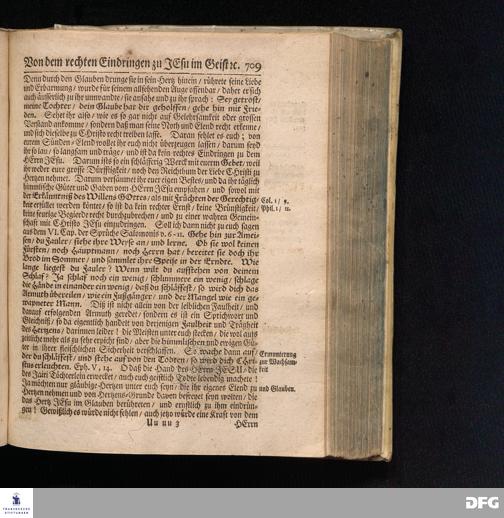 Von dem rechten Eindringen zu JEsu im Geist ꝛc. 709
Denn durch den Glauben drunge sie in sein Hertz hinein / rührete seine Liebe
und Erbarmung / wurde für seinem allsehenden Auge offenbar / daher er sich
auch äusserlich zu ihr umwandte / sie ansahe und zu ihr sprach: Sey getrost /
meine Tochter / dein Glaube hat dir geholffen / gehe hin mit Frie-
den. Sehet ihr also / wie es so gar nicht auf Gelehrsamkeit oder grossen
Verstand ankomme / sondern daß man seine Noth und Elend recht erkenne /
und sich dieselbe zu Christo recht treiben lasse. Daran fehlet es euch; von
eurem Sünden-Elend wollet ihr euch nicht überzeugen lassen / darum seyd
ihr so lau / so langsam und träge / und ist da kein rechtes Eindringen zu dem
HErrn JEsu. Darum ists so ein schläfferig Werck mit eurem Gebet / weil
ihr weder eure grosse Dürfftigkeit / noch den Reichthum der Liebe Christi zu
Hertzen nehmet. Darum versäumet ihr euer eigen Bestes / und da ihr täglich
himmlische Güter und Gaben vom HErrn JEsu empfahen / und sowol mit
der Erkäntniß des Willens GOttes / als mit Früchten der Gerechtig-
keit erfüllet werden köntet / so ist da kein rechter Ernst / keine Brünstigkeit /
keine feurige Begierde recht durchzubrechen / und zu einer wahren Gemein-
schaft mit Christo JEsu einzudringen. Soll ich dann nicht zu euch sagen
aus dem VI. Cap. der Sprüche Salomonis v. 6-11. Gehe hin zur Amei-
sen / du Fauler / siehe ihre Weise an / und lerne. Ob sie wol keinen
Fürsten / noch Hauptmann / noch Herrn hat / bereitet sie doch ihr
Brod im Sommer / und samlet ihre Speise in der Erndte. Wie
lange liegest du Fauler? Wenn wilt du aufstehen von deinem
Schlaf? Ja schlaf noch ein wenig / schlummere ein wenig / schlage
die Hände in einander ein wenig / daß du schläffest / so wird dich das
Armuth übereilen / wie ein Fußgänger / und der Mangel wie ein ge-
wapneter Mann. Diß ist nicht allein von der leiblichen Faulheit / und
darauf erfolgenden Armuth geredet / sondern es ist ein Sprichwort und
Gleichniß / so da eigentlich handelt von derjenigen Faulheit und Trägheit
des Hertzens / darinnen leider! die Meisten unter euch stecken / die wol aufs
zeitliche mehr als zu sehr erpicht sind / aber die himmlischen und ewigen Gü-
ter in ihrer fleischlichen Sicherheit verschlaffen. So wache dann auf /
der du schläffest / und stehe auf von den Todten / so wird dich CHri-
stus erleuchten. Eph. V, 14. O daß die Hand des HErrn JESU / die
des Jairi Töchterlein erwecket / auch euch geistlich Todte lebendig machete!
Ja möchten nur gläubige Hertzen unter euch seyn / die ihr eigenes Elend zu
Hertzen nehmen und von Hertzens-Grunde davon befreyet seyn wolten / die
das Hertz JEsu im Glauben berühreten / und ernstlich zu ihm eindrün-
gen! Gewißlich es würde nicht fehlen / auch jetzo würde eine Kraft von dem
Uu uu 3 HErrn
Col. 1 / 9.
Phil. 1 / 11.
Ermunterung
zur Wachsam-
keit
und Glauben.
FRANCKESCHE
STIFTUNGEN
DFG